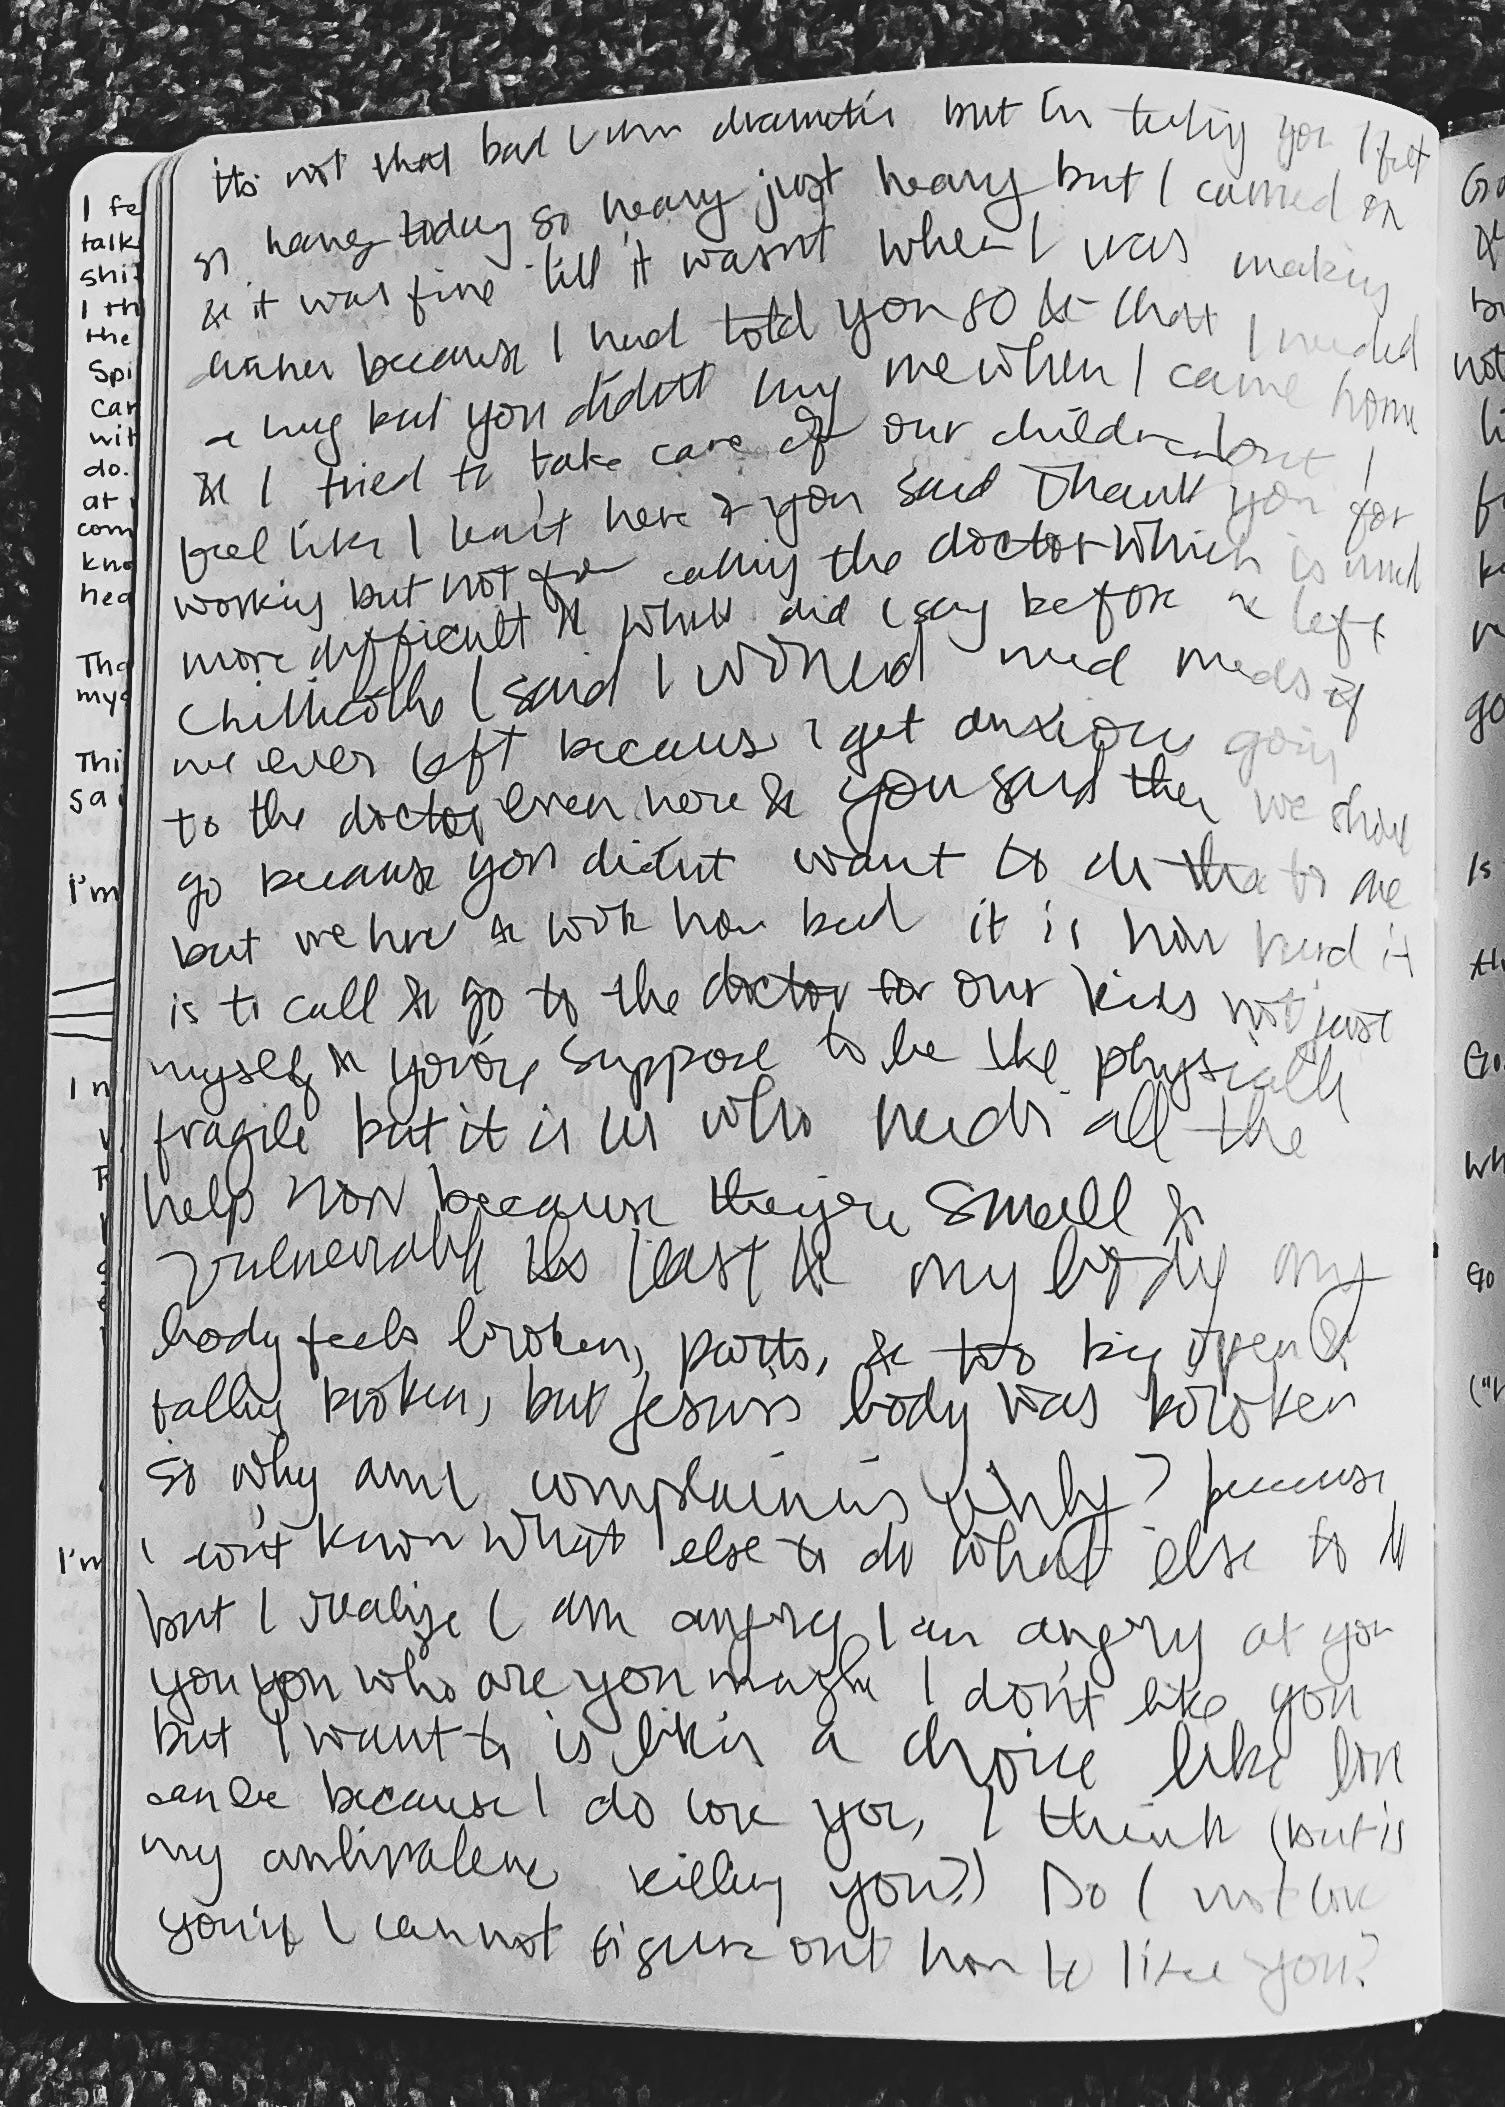 I fe
talk
shi
I th
the
Spi
Car
wit
do.
at
com
kno
hea
Tha
mys
Thi
sai
I'm
I n
I'm
its not that bad I am dramatic but Im telling you I felt
so heavy today so heavy just heavy but I carried on
& it was fine till it wasnt when I was making
dinner because I had told you so & that I needed
a hug but you didnt hug me when I came home
& I tried to take care of our children but I
feel like I can't here & you said Thank you for
working but not for calling the doctor which is much
more difficult & what did I say before we left
Chillicothe I said I would need meds if
we ever left because I get anxious going
to the doctor even here & you said then we should
go because you didnt want to do that to me
but we here & look how bad it is how hard it
is to call & go to the doctor for our kids not just
myself & you're suppose to be the physically
fragile but it is us who needs all the
help now because they're small &
vulnerable the least & my body my
body feels broken, parts, & too big open &
falling broken, but Jesus's body was broken
so why am I complaining why? because
I don't know what else to do what else to do
but I realize I am angry I am angry at you
you you who are you maybe I don't like you
but I want to is likin a choice like love
can be because I do love you, I think (but is
my ambivalence killing you?) Do I not love
you if I cannot figure out how to like you?
Go
not
go
Is
Go
("